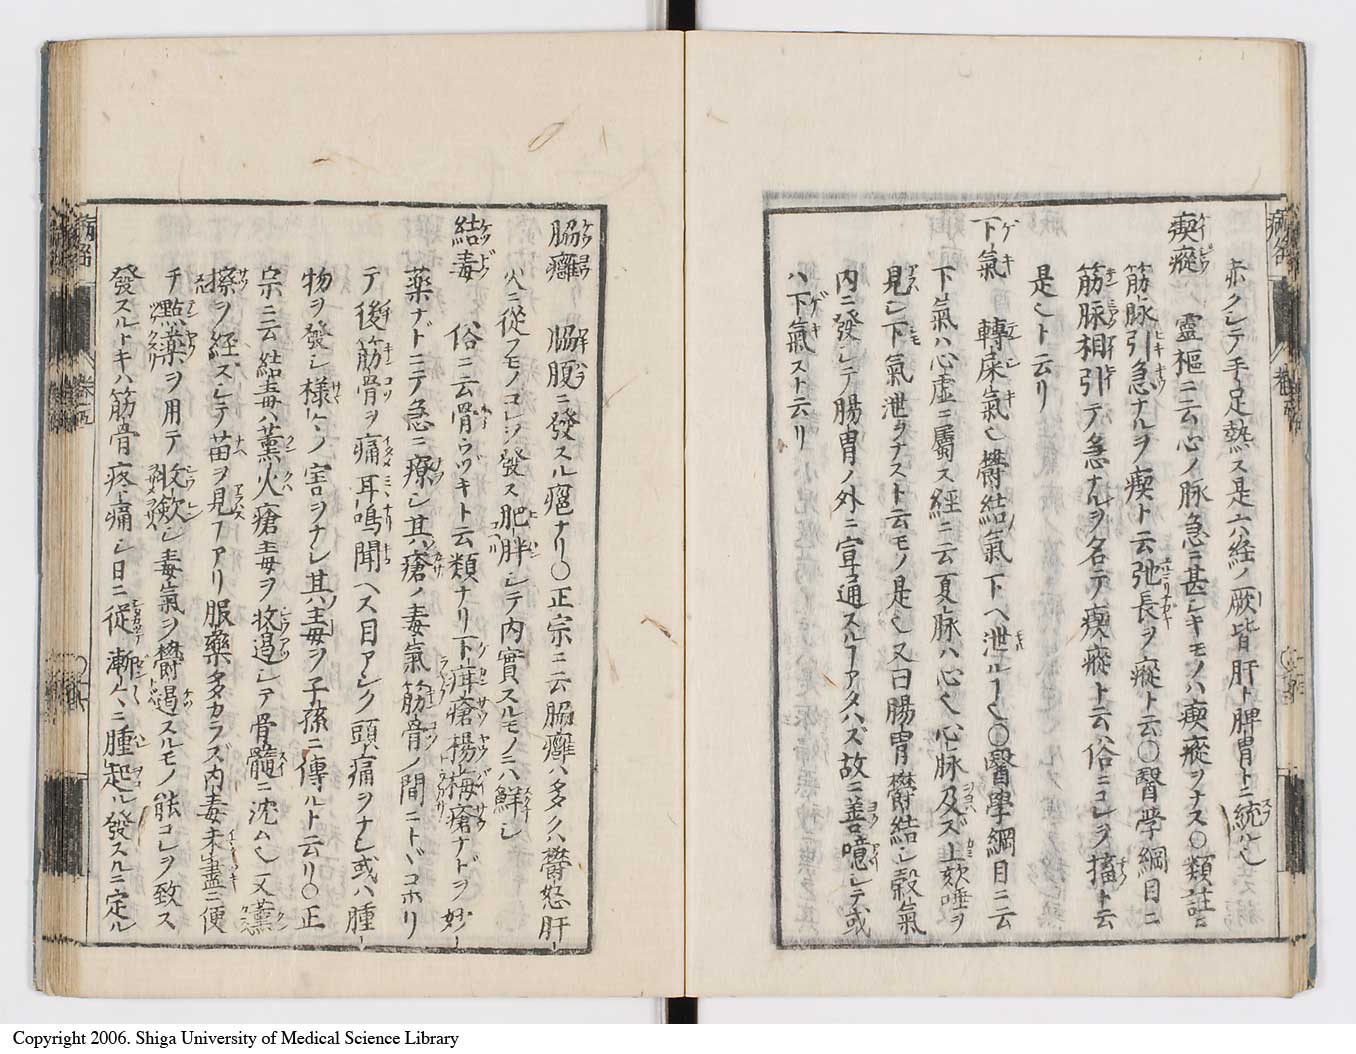 赤クシテ手足熱ス是六経ノ厥皆肝ト脾胃トニ統ル也
瘈瘲 靈樞ニ云心ノ脉急ニ甚シキモノハ瘈瘲ヲナス○類註ニ
筋脉引急ナルヲ瘈ト云弛長ヲ瘲ト云○醫學綱目ニ
筋脉相引テ急ナルヲ名テ瘈瘲ト云俗ニコレヲ搐ト云
是也ト云リ
下氣 轉屎氣也欝結氣下ヘ泄ルヿ也○醫學綱目ニ云
下氣ハ心虚ニ屬ス経ニ云夏脉ハ心也心脉及ズ上欬唾ヲ
見シ下氣泄ヲナスト云モノ是也又曰腸胃欝結シ穀氣
内ニ發シテ腸胃ノ外ニ宣通スルヿアタハズ故ニ善噫シテ或
ハ下氣スト云リ
脇癰 脇腹ニ發スル癰ナリ○正宗ニ云脇癰ハ多クハ欝怒肝
火ニ從フモノコレヲ發ス肥胖シテ内實スルモノニハ鮮シ
結毒 俗ニ云骨ウヅキト云類ナリ下疳瘡楊梅瘡ナドヲ妙
薬ナドニテ急ニ療シ其瘡ノ毒氣筋骨ノ間ニトヾコホリ
テ後筋骨ヲ痛耳鳴聞ヘス目アシク頭痛ヲナシ或ハ腫
物ヲ發シ様〱ノ害ヲナシ其毒ヲ子孫ニ傳ルト云リ○正
宗ニ云結毒ハ薫火瘡毒ヲ收遏シテ骨髓ニ沈ム也又薫
擦ヲ経スシテ苗ヲ見アリ服藥多カラズ内毒未盡ニ便
チ㸃藥ヲ用テ收歛シ毒氣ヲ欝遏スルモノ能コレヲ致ス
發スルトキハ筋骨疼痛シ日ニ從漸〱ニ腫起ル發スルニ定ル
病名
卷五